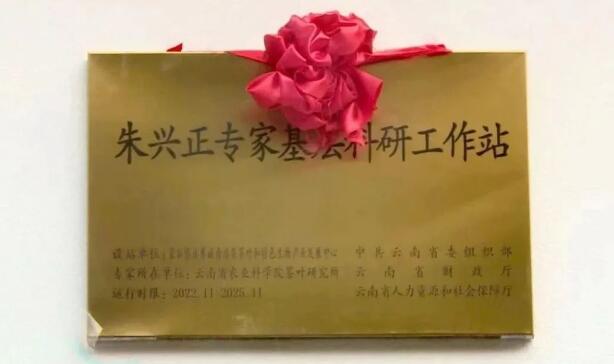 朱兴正专家基层科研工作站
设站单位:
茶叶和特色生物产业发展中心
专家所在单位:云南省农业科学院茶叶研究所
运行时限:2022.11-2025.11
中共云南省委组织部
云南省财政厅
云南省人力资源和社会保障厅